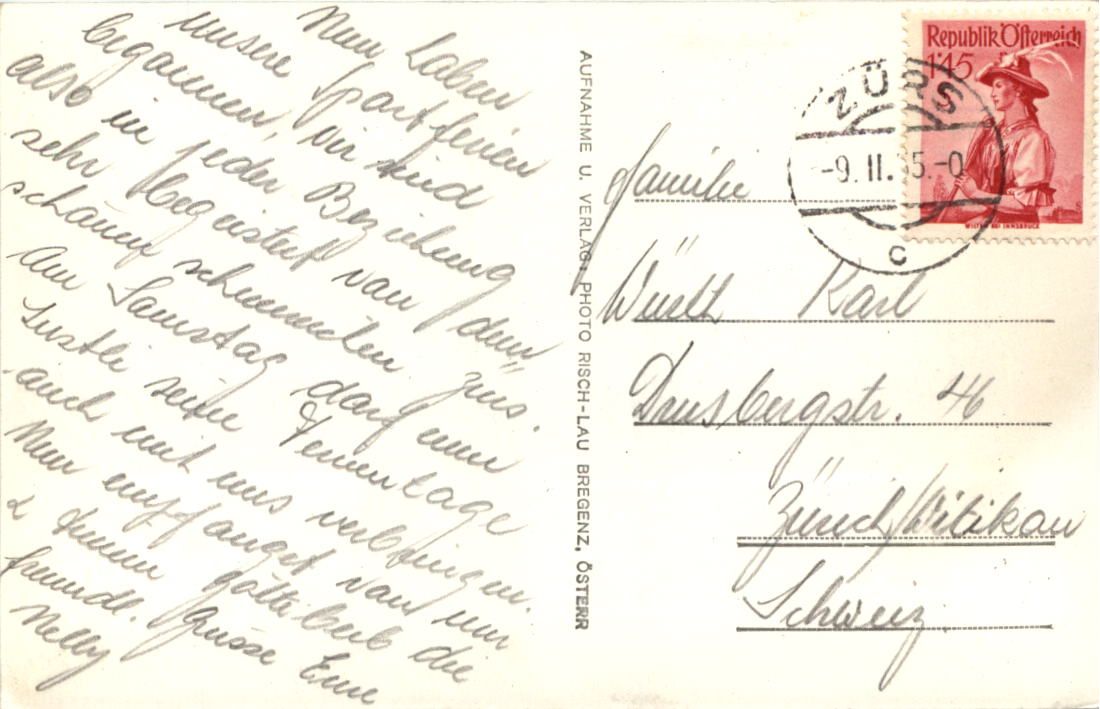 Nun haben
unsere Sportferien
begonnen, wir sind
also in jeder Beziehung
sehr begeistert von dem
schauen schummelen Zürs.
Am Samstag darf nun
Sustli seine Ferientage
auch mit uns verbringen.
Nun empfanget von mir
2 Gottlieb die
freundl. Grüsse Eure
Nelly
AUFNAHME U. VERLAG: PHOTO RISCH-LAU BREGENZ, ÖSTERR
Republik Österreich
1'45
WILTEN BEI INNSBRUCK
ZÜRS
-9.II.55.-0
c
Familie
Würth Karl
Drusbergstr. 46
Zürich/Witikon
Schweiz